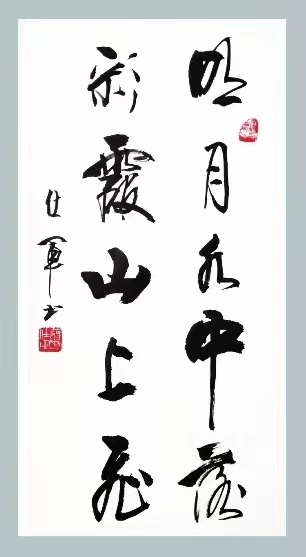 明月水中落
彩霞山上飛
仕軍书